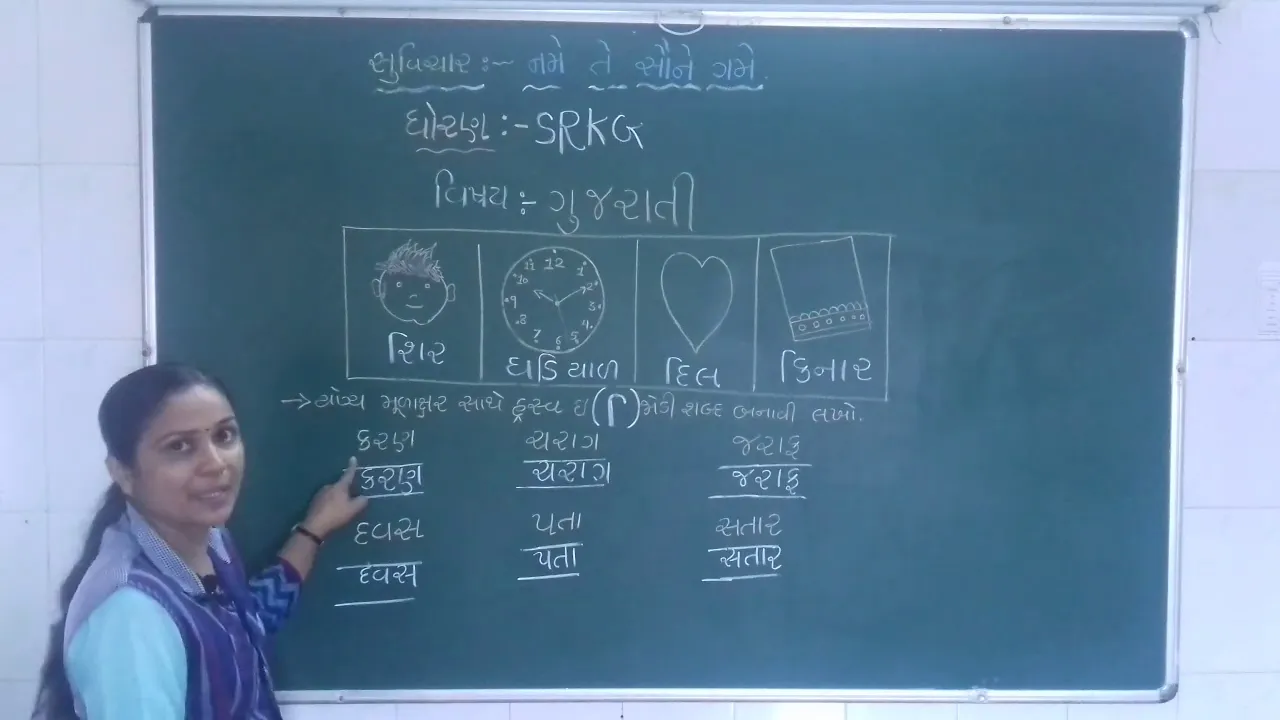 સુવિચાર :~ નમે તે સૌને ગમે.
ધોરણ :- SRKG
વિષય :- ગુજરાતી
11 12 1
10 2
9 3
8 4
7 6 5
શિર ઘડિયાળ દિલ કિનાર
→ યોગ્ય મૂળાક્ષર સાથે હ્રસ્વ ઇ (િ) જોડી શબ્દ બનાવી લખો.
કરણ ચરાગ જરાફ
કરાણ ચરાગ જરાફ
દવસ પતા સતાર
દવસ પતા સતાર